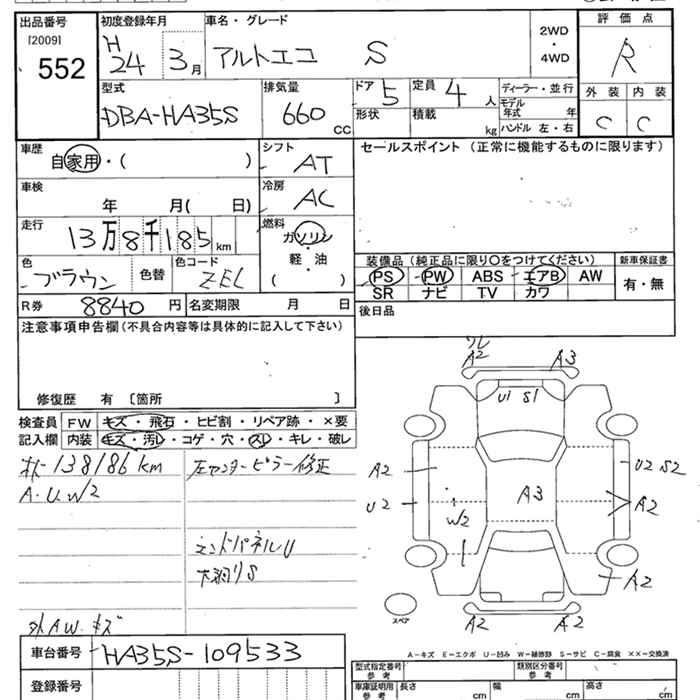 出品番号
[2009]
552
初度登録年月
H
24 3月
車名・グレード
アルトエコ S
2WD
・
4WD
評価点
R
外装 内装
C C
型式
DBA-HA35S
排気量
660 CC
ドア 5
形状
定員 4 人
積載 kg
ディーラー・並行
モデル年式 年
ハンドル 左・右
車歴
自家用・( )
シフト
AT
セールスポイント (正常に機能するものに限ります)
車検
年 月( 日)
冷房
AC
走行
13万8千185km
燃料
ガソリン
・
軽・油
・
( )
色
ブラウン
色替
色コード
ZEL
装備品 (純正品に限り○をつけてください)
新車保証書
PS PW ABS エアB AW
SR ナビ TV カワ
有・無
R券 8840円
名変期限 月 日
後日品
注意事項申告欄(不具合内容等は具体的に記入して下さい)
修復歴 有 〔箇所 〕
検査員
記入欄
FW キズ・飛石・ヒビ割・リペア跡・×要
内装 キズ・汚レ・コゲ・穴・スレ・キレ・破レ
138186km
A・U・W2
左センターピラー修正
エンドパネルU
S
外AWキズ
A2 A3
U1 S1
A2
U2
W2
A3
U2 S2
A2
A2
A2 A2
スペア
A-キズ E-エクボ U-凹み W-補修跡 S-サビ C-腐食 ××-交換済
車台番号 HA35S-109533
登録番号
型式指定番号
参考
類別区分番号
参考
車庫証明用
参考
長さ cm
幅 cm
高さ cm